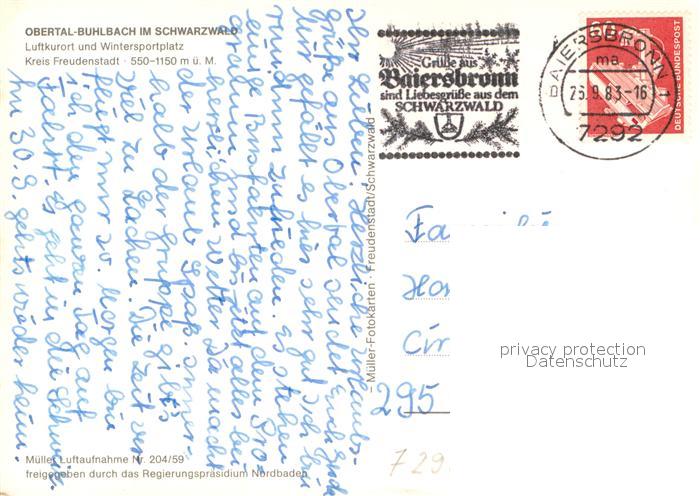 OBERTAL-BUHLBACH IM SCHWARZWALD
Luftkurort und Wintersportplatz
Kreis Freudenstadt · 550–1150 m ü. M.
Grüße aus
Baiersbronn
sind Liebesgrüße aus dem
SCHWARZWALD
BAIERSBRONN 1
ma
26.9.83-16
7292
80
DEUTSCHE BUNDESPOST
Ihr Lieben! Herzliche Urlaubs-
grüße aus Obertal sendet Euch
Mir gefällt es hier sehr gut, ich bin
rundum zufrieden. Es stehen
einige Busfahrten auf dem Pro-
gramm und bis jetzt alles bei
herrlichem Wetter. Da macht
der Urlaub Spaß. Inner-
halb der Gruppe gibt's
viel zu Lachen. Die Zeit ver-
fliegt nur so. Morgen bin
ich den ganzen Tag auf
Fahrt. Es geht in die Schweiz.
Am 30.9. geht's wieder heim.
– Müller-Fotokarten · Freudenstadt/Schwarzwald –
Fa
Ho
Cir
295
729
privacy protection
Datenschutz
Müller Luftaufnahme Nr. 204/59
freigegeben durch das Regierungspräsidium Nordbaden